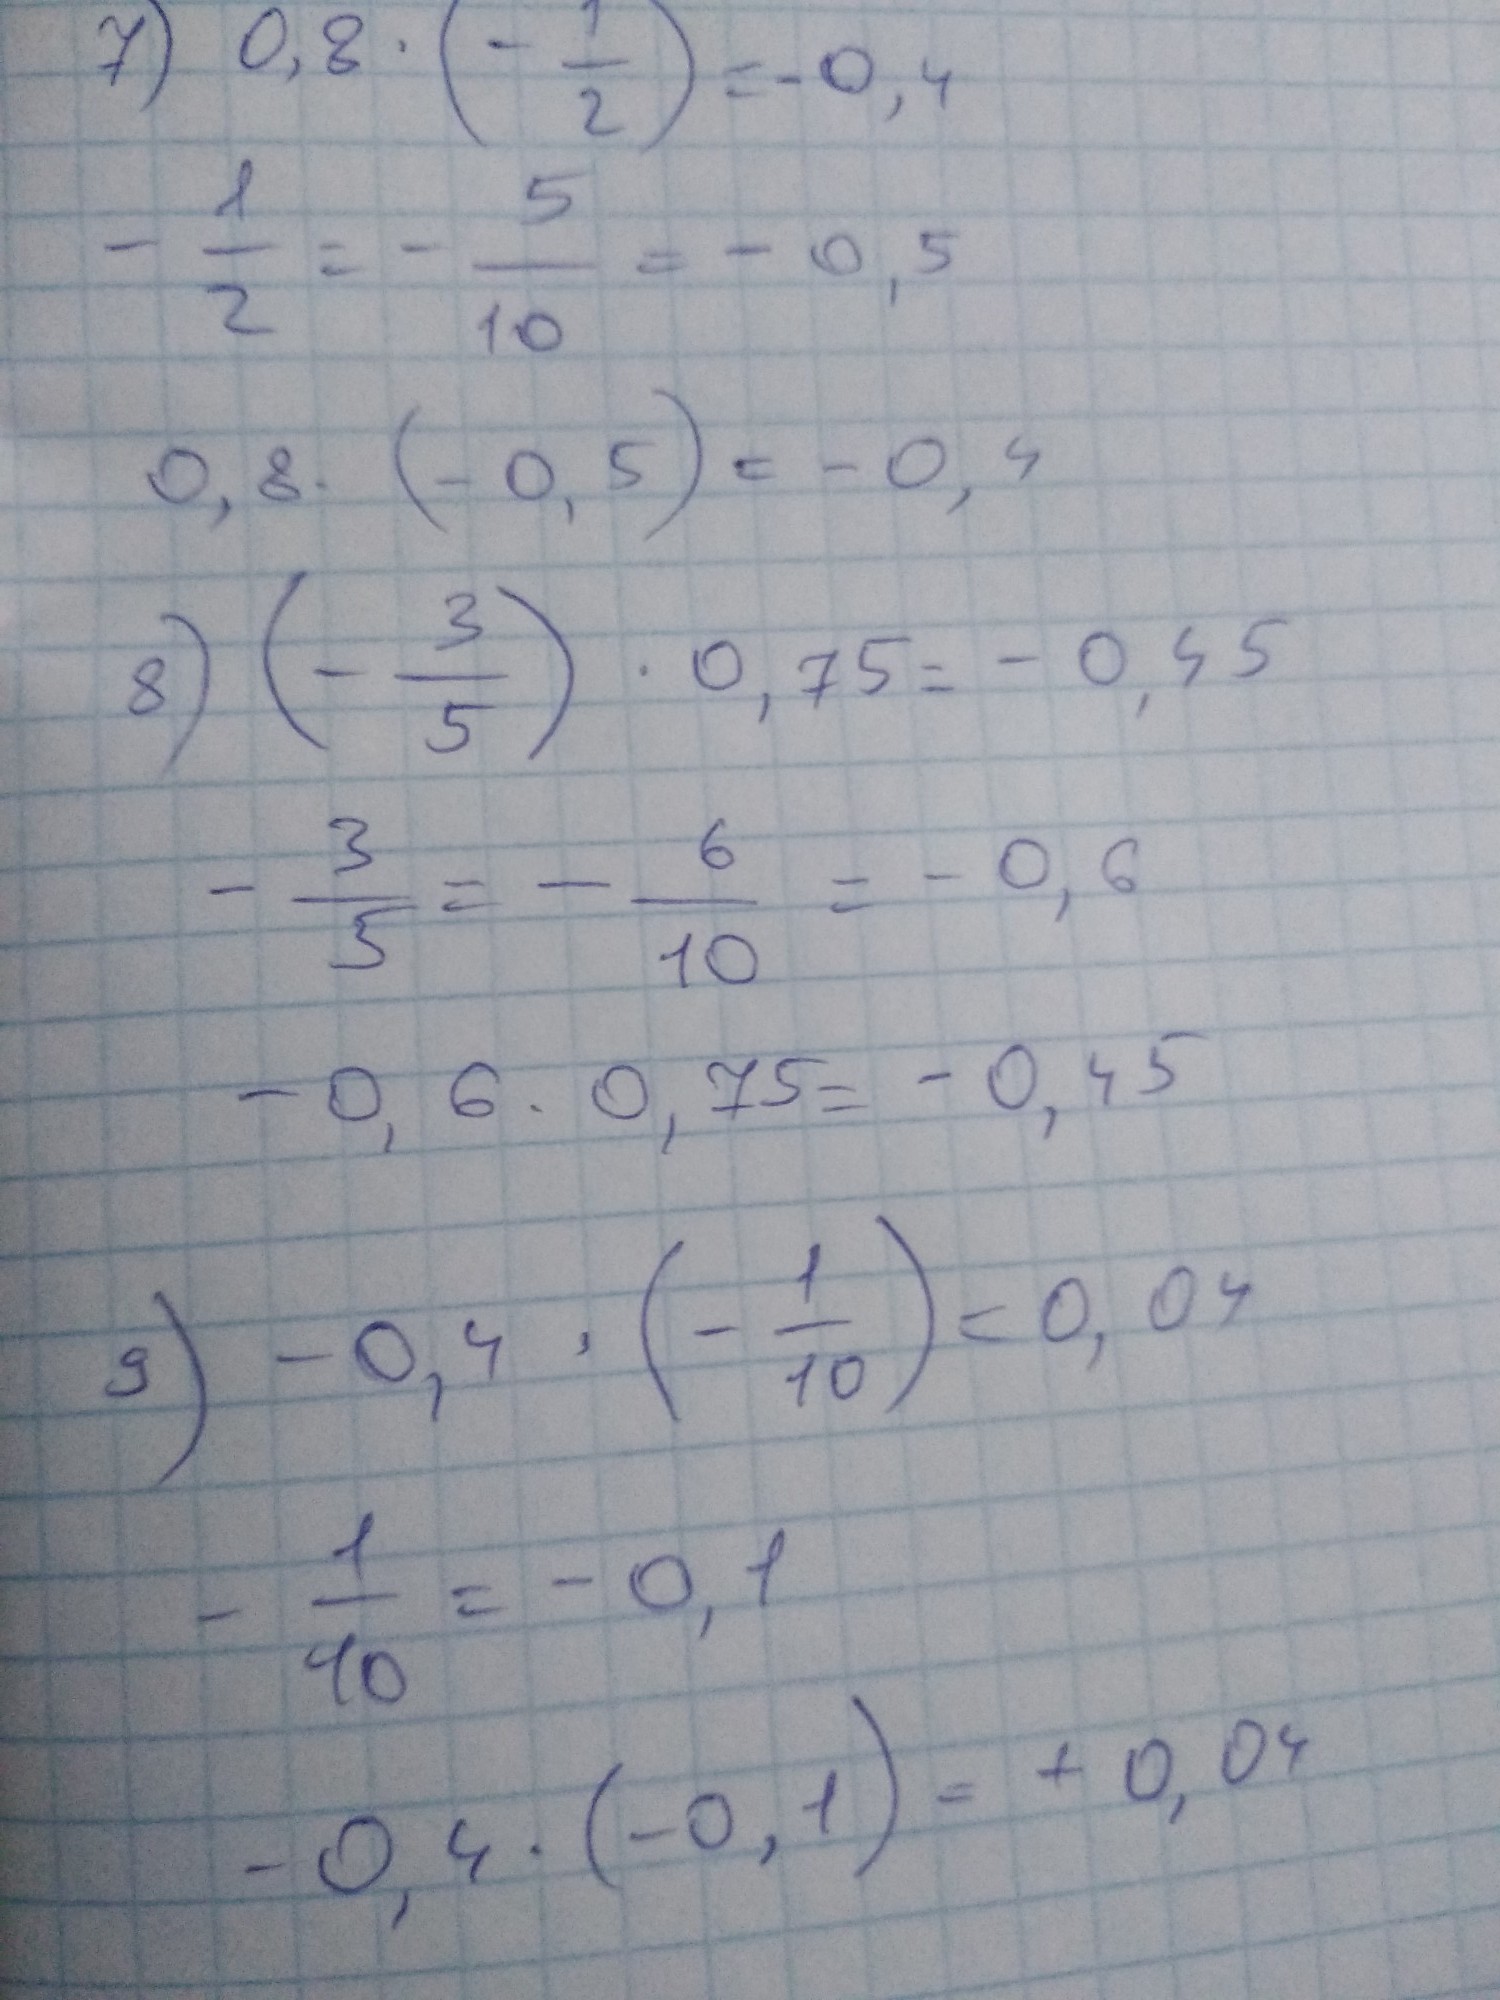 7) 0,8 · (- 1/2) = -0,4
- 1/2 = - 5/10 = - 0,5
0,8 · (- 0,5) = - 0,4
8) (- 3/5) · 0,75 = - 0,45
- 3/5 = - 6/10 = - 0,6
- 0,6 · 0,75 = - 0,45
9) - 0,4 · (- 1/10) = 0,04
- 1/10 = - 0,1
- 0,4 · (-0,1) = + 0,04